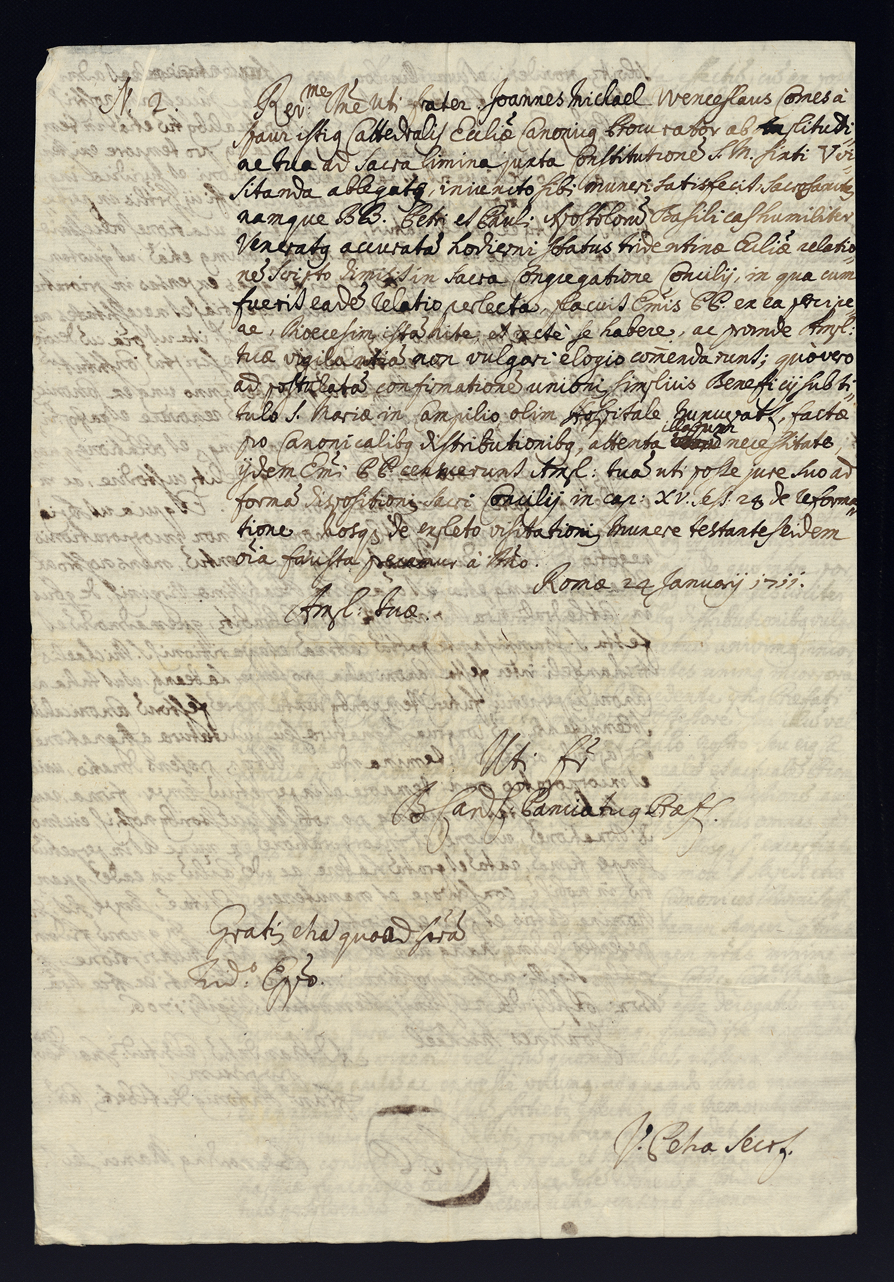 N. 2.
Rev:me Dñe uti frater. Joannes Michael Wenceslaus Comes à
Spaur istiq Cattedralis Eccliæ Canonicq Procurator ab Amplitudi-
ne tua ad Sacra limina juxta Constitutionẽ S. M. Sixti V. vi-
sitanda ablegatq, iniuncto sibi muneri satisfecit. Sacrosanctas
namque BB. Petri et Pauli Apostolorũ Basilicas humiliter
Veneratq accuratã hodierni status tridentinæ Eccliæ relatio-
nẽ scripto dimisit in Sacra Congregatione Concilij, in qua cum
fuerit eadẽ relatio perlecta, placuit Emis PP. ex ea percipe-
re, Dioecesim istã rite, et rectè se habere, ac proinde Ampl:
tuæ vigilantiã non vulgari elogio comẽdarunt; quò vero
ad postulatã confirmationẽ unionis simplicis Beneficij sub ti-
tulo S. Mariæ in Campilio olim Hospitale nuncupati, factæ
pro Canonicalibq distributionibq, attenta illarum necessitate,
ijdem Emi PP. censuerunt Ampl: tuã uti posse jure suo ad
formã dispositionis Sacri Concilij in cap: XV. ses. 24 de reforma-
tione. Nosq de expleto visitationis munere testantes eidem
oia fausta precamur à Dño.
Romæ 24 Januarij 1711.
Ampl: tuæ.
Uti fr
B. Card. Panciaticq Præf.
Gratis etiã quoad scripturã
Rdo Epo.
P. Petra Secrs.